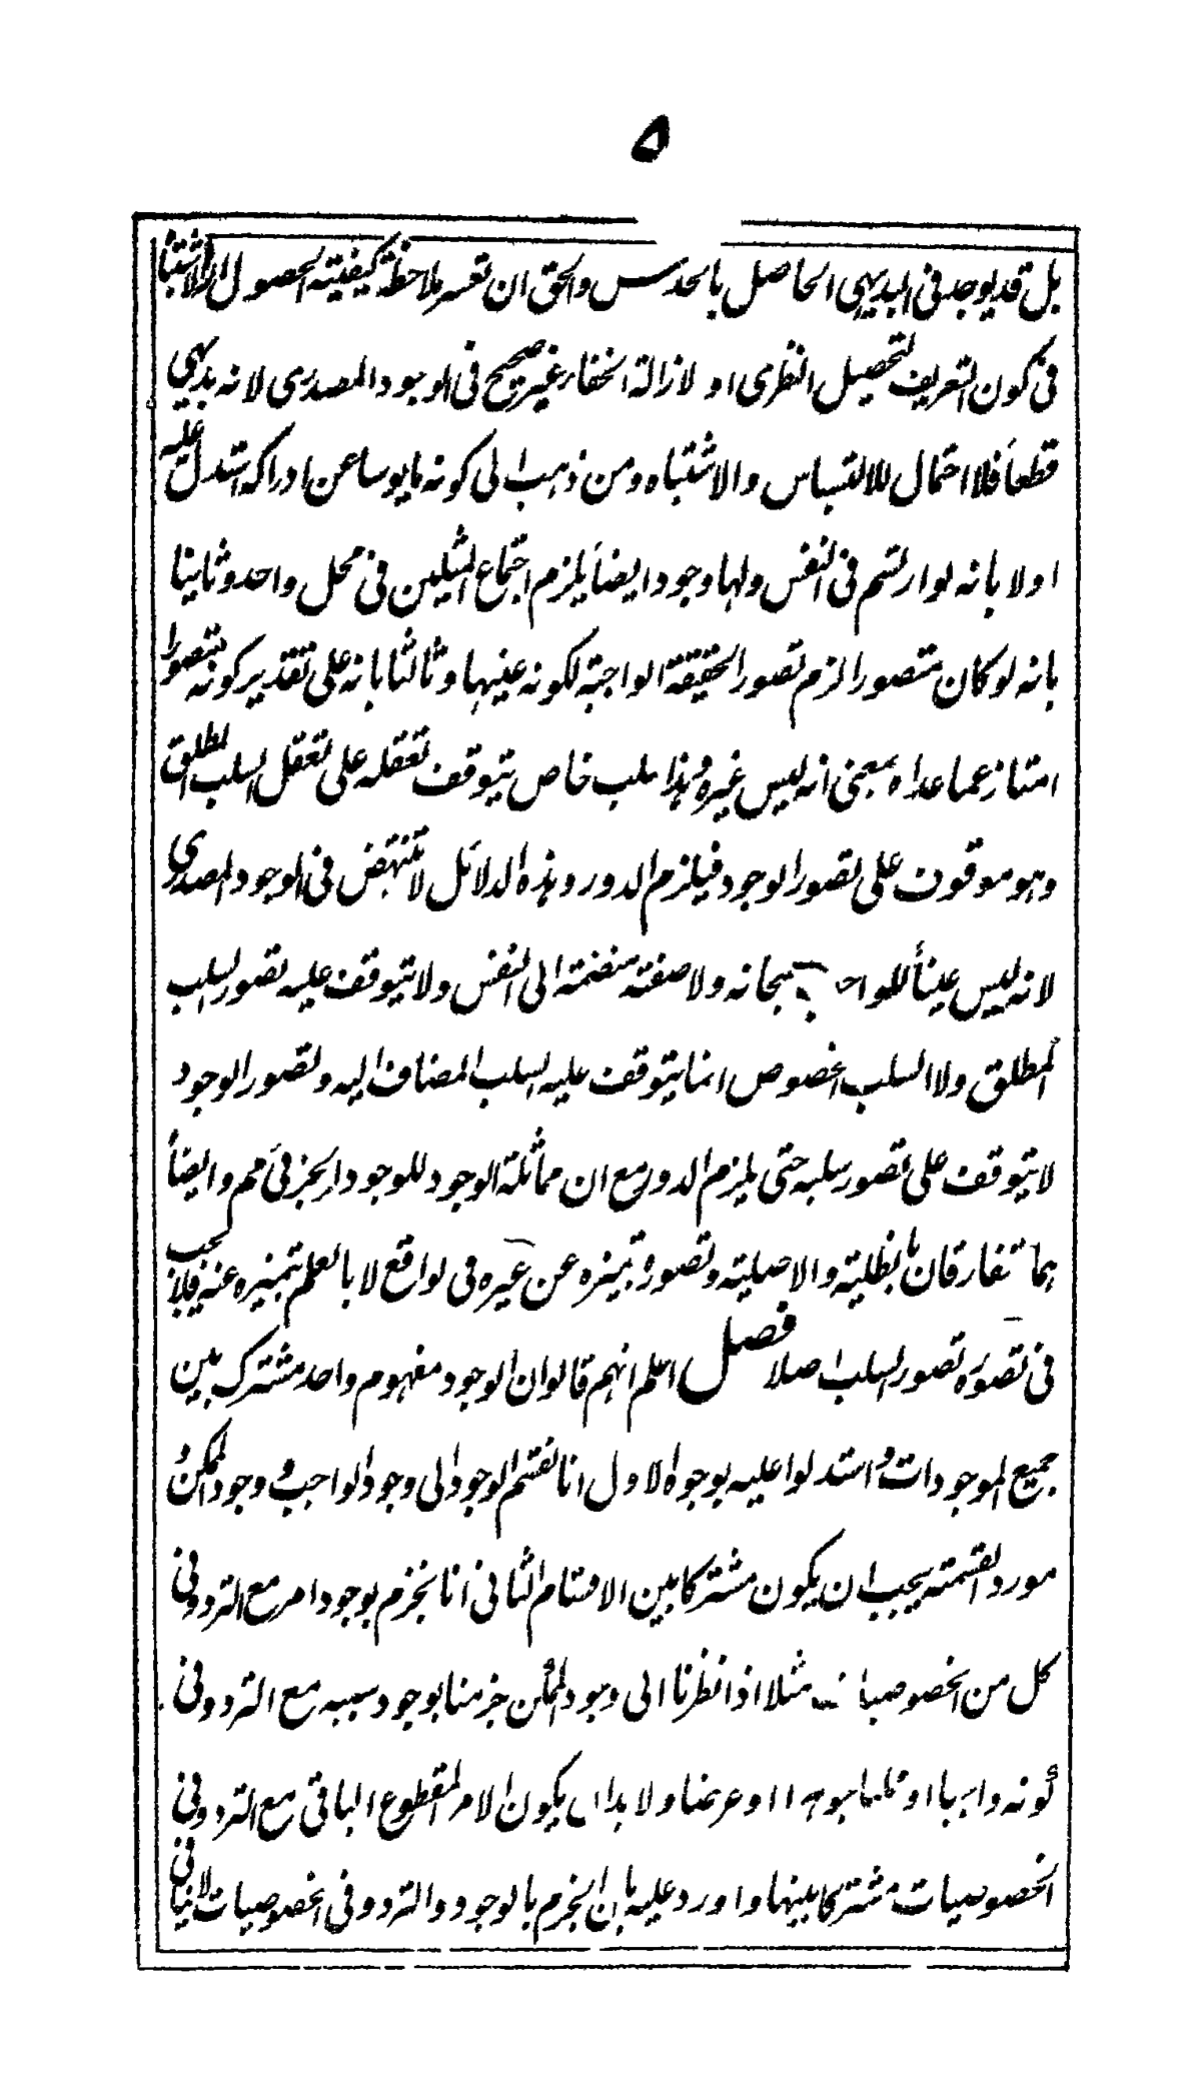 ۵
بل قد يوجد فى البديهى الحاصل بالحدس والحق ان تعسر ملاحظة كيفية الحصول اولا لاشتباه
فى كون التعريف لتحصيل النظرى او لازالة الخفاء غير صحيح فى الوجود المصدرى لانه بديهى
قطعاً فلا احتمال للالتباس والاشتباه ومن ذهب الى كونه مايوسا عن ادراكه استدل عليه
اولا بانه لو ارتسم فى النفس ولها وجود ايضاً يلزم اجتماع المثلين فى محل واحد وثانيا
بانه لو كان متصورا لزم تصور الحقيقة الواجبة لكونه عينها وثالثا بانه على تقدير كونه متصورا
امتاز عما عداه بمعنى انه ليس غيره وهذا سلب خاص يتوقف تعقله على تعقل السلب المطلق
وهو موقوف على تصور الوجود فيلزم الدور وهذه الدلائل لا تنتهض فى الوجود المصدرى
لانه ليس عيناً للواجب سبحانه ولا صفة منضمة الى النفس ولا يتوقف عليه تصور السلب
المطلق ولا السلب المخصوص انما يتوقف عليه السلب المضاف اليه وتصور الوجود
لا يتوقف على تصور سلبه حتى يلزم الدور مع ان مماثلة الوجود للوجود الجزئى مم وايضاً
هما تفارقان بالظلية والاصلية وتصوره تميزه عن غيره فى لواقع لا بالعلم بتميزه عنه فلا يجب
فى تصوره تصور السلب اصلا فصل اعلم انهم قالوا ان الوجود مفهوم واحد مشترك بين
جميع الموجودات واستدلوا عليه بوجوه الاول انا نقسم الوجود الى وجود الواجب ووجود الممكن و
مورد القسمة يجب ان يكون مشتركا بين الاقسام الثانى انا نجزم بوجود امر مع التردد فى
كل من الخصوصيات مثلا اذا نظرنا الى وجود الممكن جزمنا بوجود سببه مع التردد فى
كونه واجبا او ممكنا جوهرا او عرضا ولا بد ان يكون الامر المقطوع الباقى مع التردد فى
الخصوصيات مشتركا بينها واورد عليه بان الجزم بالوجود والتردد فى الخصوصيات لا ينافى